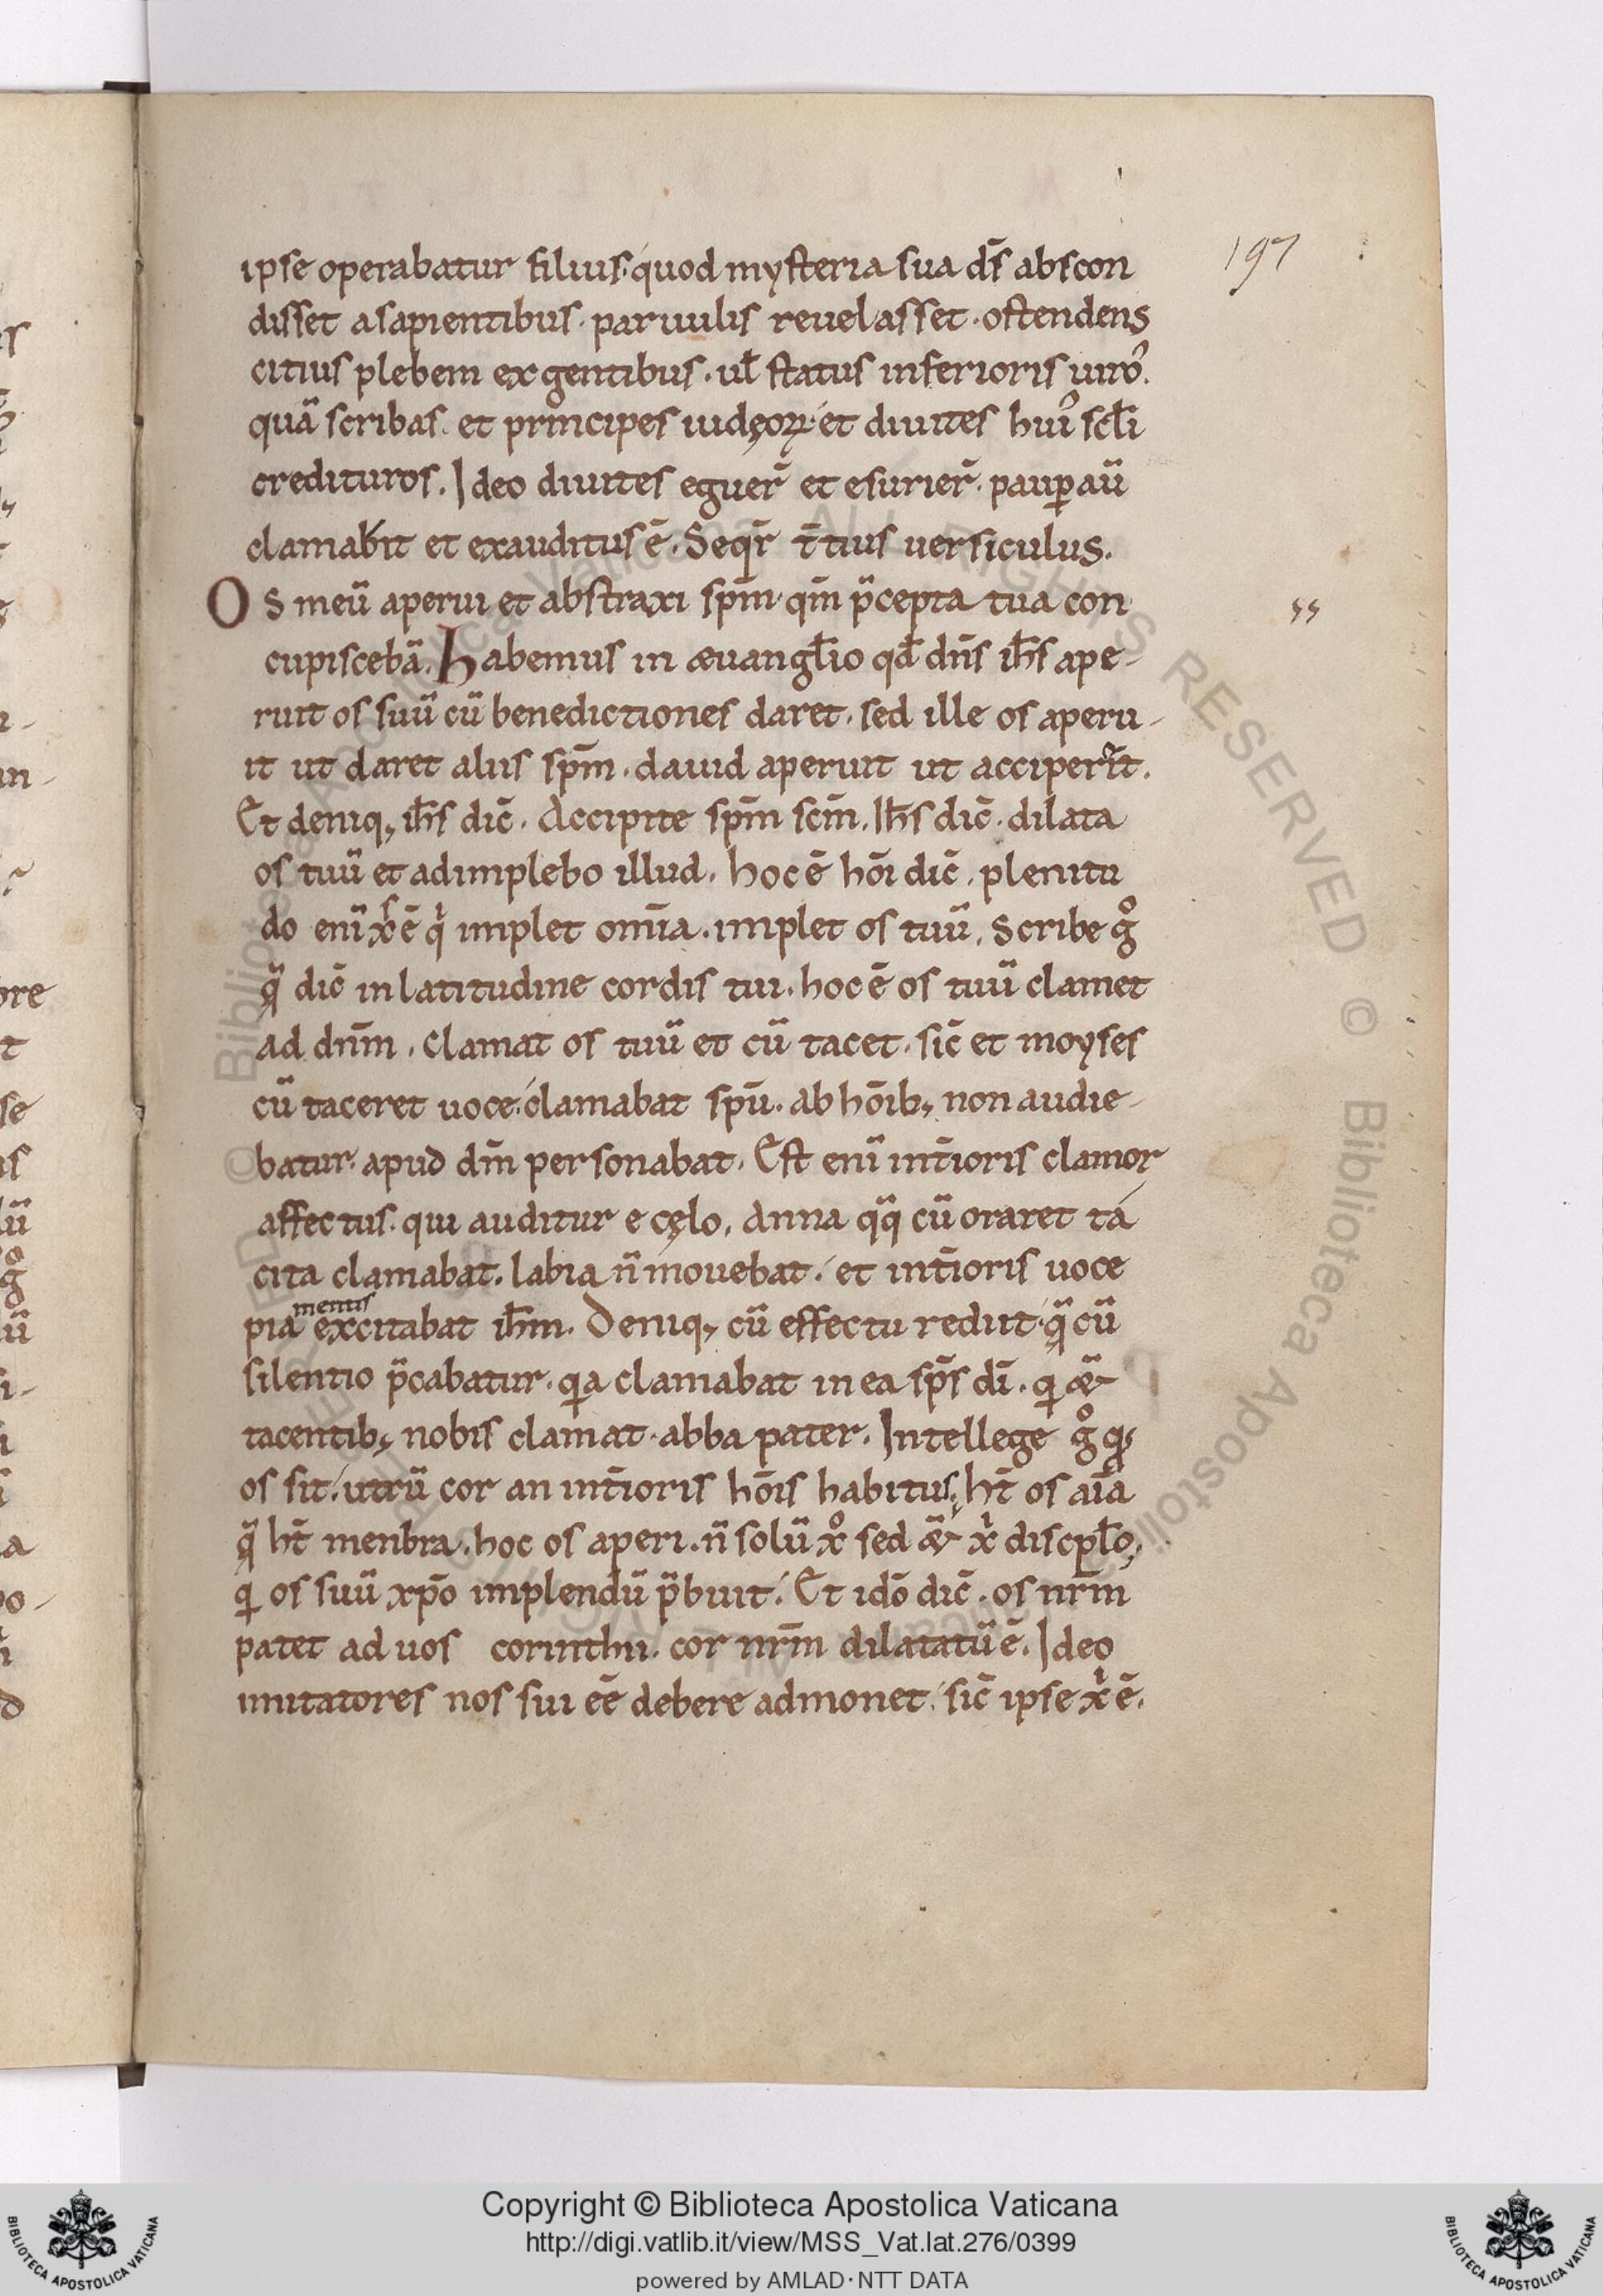 ipse operabatur filius. quod mysteria sua ds̄ abscon
disset a sapientibus. paruulis reuelasset. ostendens
citius plebem ex gentibus. ul̄ status inferioris uiro᷒.
quā scribas. et principes iudęoꝝ. et diuites hui᷒ scl̄i
credituros. Ideo diuites eguer̄ et esurier̄. paup̱ aū
clamabit et exauditus ē. Seqr̄ t̄tius uersiculus.
Os meū aperui et abstraxi sp̄m. qm̄ p̄cepta tua con
cupiscebā. Habemus in æuangl̄io qd̄ dn̄s ih̄s ape-
ruit os suū cū benedictiones daret. sed ille os aperu-
it ut daret aliis sp̄m. dauid aperuit ut acciperit.
Et deniq; ih̄s dic̄. Accipite sp̄m scm̄. Ih̄s dic̄. dilata
os tuū et adimplebo illud. hoc ē hōi dic̄. plenitu
do enī xp̄s ē qͥ implet om̄ia. implet os tuū. Scribe gͦ
qᷓ dic̄ in latitudine cordis tui. hoc ē os tuū clamet
ad dn̄m. clamat os tuū et cū tacet. sic̄ et moyses
cū taceret uoce. clamabat sp̄u. ab hōib; non audie-
batur. apud dm̄ personabat. Est enī int̄ioris clamor
affectus. qui auditur e cęlo. Anna qᷓqᷓ cū oraret ta
cita clamabat. labia n̄ mouebat. et int̄ioris uoce
pia mentis excitabat ih̄m. Deniq; cū effectu rediit. qᷓ cū
silentio p̄cabatur. quia clamabat in ea sp̄s dī. qui &ᷓ
tacentib; nobis clamat. abba pater. Intellege gͦ q̄
os sit. utrū cor an int̄ioris hōis habitus. ht̄ os aīa
qᷓ ht̄ menbra. hoc os aperi. n̄ solū xͦ sed &ᷓ xͥ discpl̄o.
qui os suū xp̄o implendū p̄buit. Et idō dic̄. os nr̄m
patet ad uos corinthii. cor nr̄m dilatatū ē. Ideo
imitatores nos sui eē debere admonet. sic̄ ipse xͥ ē.
197
ss
Copyright © Biblioteca Apostolica Vaticana
http://digi.vatlib.it/view/MSS_Vat.lat.276/0399
powered by AMLAD·NTT DATA